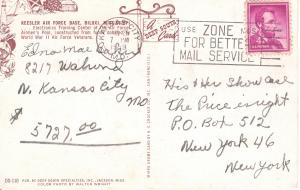 KEESLER AIR FORCE BASE, BILOXI, MISSISSIPPI
Electronics Training Center of the
Airmen's Post, constructed from
World War II Air Force Veterans.
A DEEP SOUTH CARD
USE ZONE NOS.
FOR BETTER
MAIL SERVICE
Edna Mae
8217
N. Kansas City
Mo
$5727.00
His + Her Showcase
The Price is right
P.O. Box 512
New York 46
New York
PUB. BY DEEP SOUTH SPECIALTIES, INC., JACKSON, MISS.
COLOR PHOTO BY WALTER WRIGHT